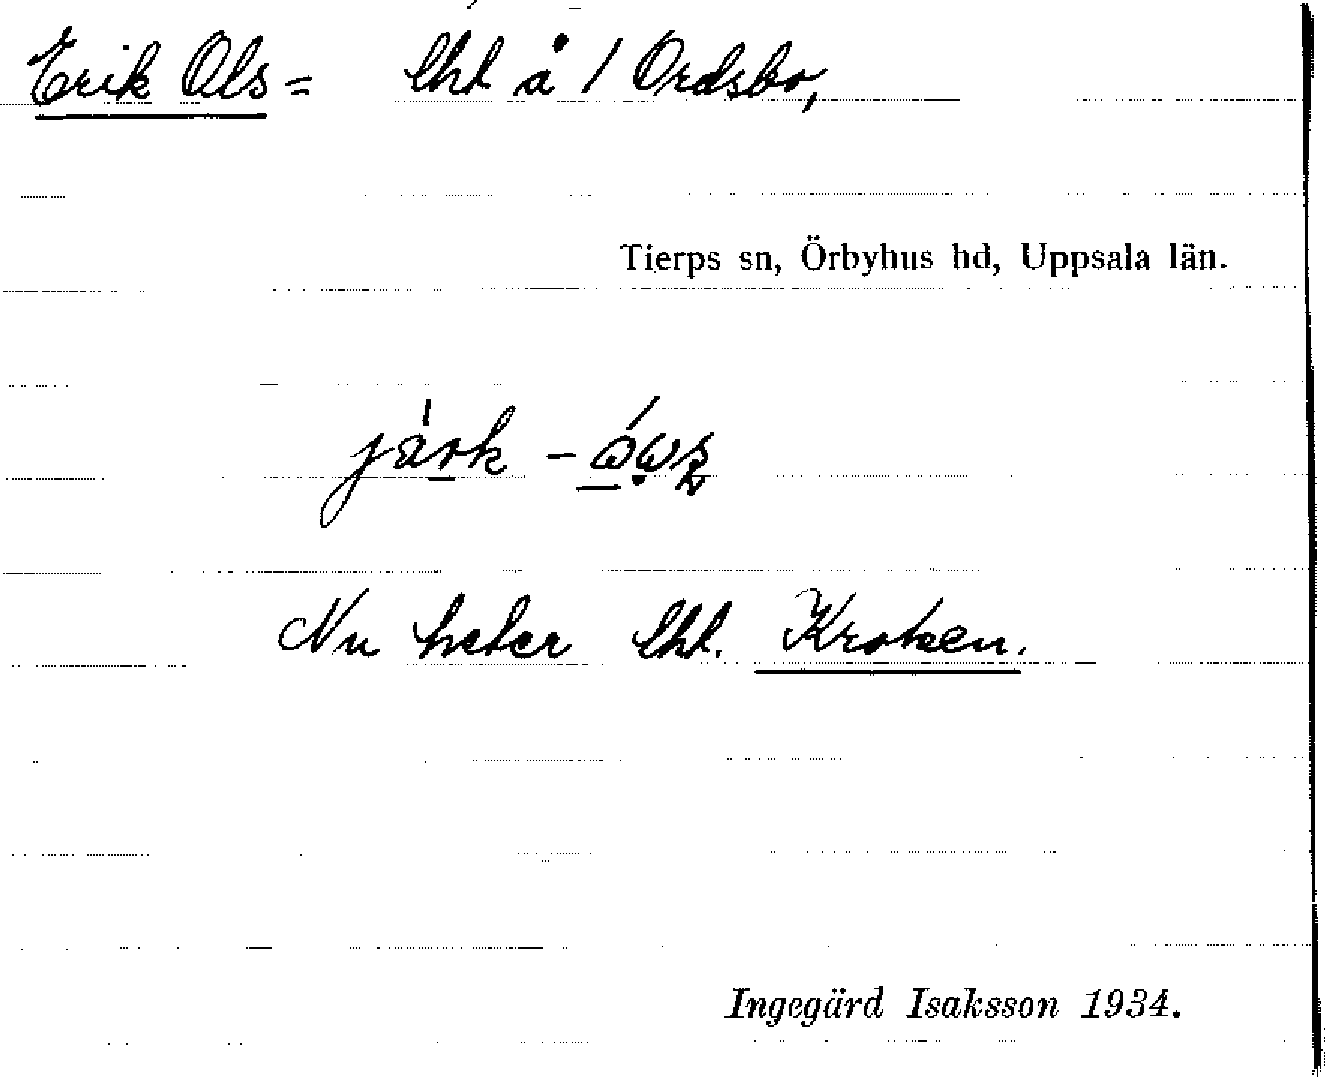 Erik Ols= lht å 1 Ordsbo,
Tierps sn, Örbyhus hd, Uppsala län.
Nu heter lht. Kroken.
Ingegärd Isaksson 1934.